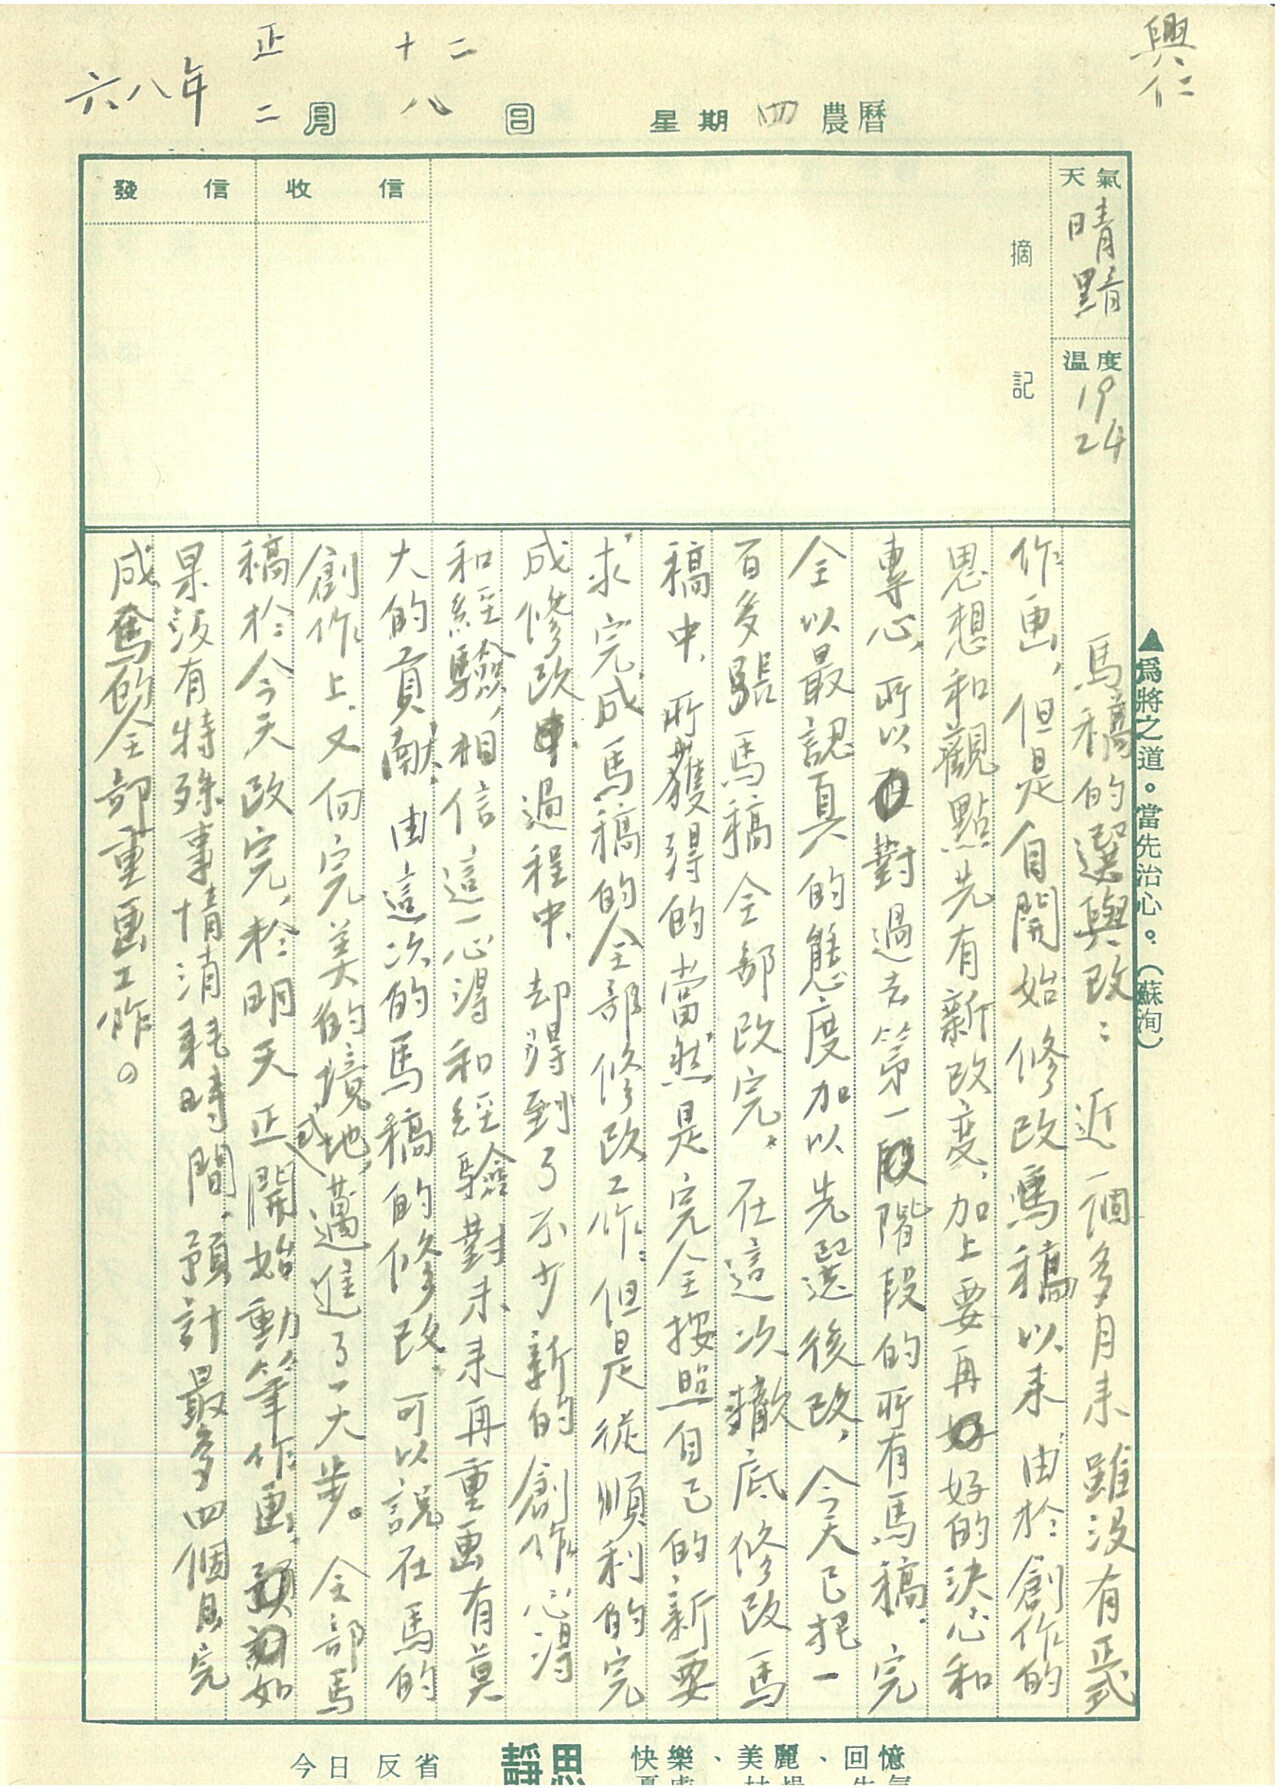 興仁
六八年 正二月 十二八日 星期四 農曆
天氣 晴
溫度 19 24
摘記
收信
發信
▲爲將之道。當先治心。(蘇洵)
馬稿的選與改：近一個多月來雖没有正式
作画，但是自開始修改馬稿以来，由於創作的
思想和觀點先有新改変，加上要再好好的決心和
專心，所以對過去第一階段的所有馬稿，完
全以最認真的態度加以先選後改，今天已把一
百多張馬稿全部改完。在這次轍底修改馬
稿中，所獲得的當然是完全按照自己的新要
求完成馬稿的全部修改工作，但是從順利的完
成修改過程中，却得到了不少新的創作心得
和経驗，相信這一心得和経驗對未来再重画有莫
大的貢献，由這次的馬稿的修改，可以説在馬的
創作上，又向完美的境地邁進了一大步。全部馬
稿於今天改完，於明天正式開始動筆作画，如
果沒有特殊事情消耗時間，預計最多四個月完
成舊的全部重画工作。
今日反省 靜思 快樂、美麗、回憶